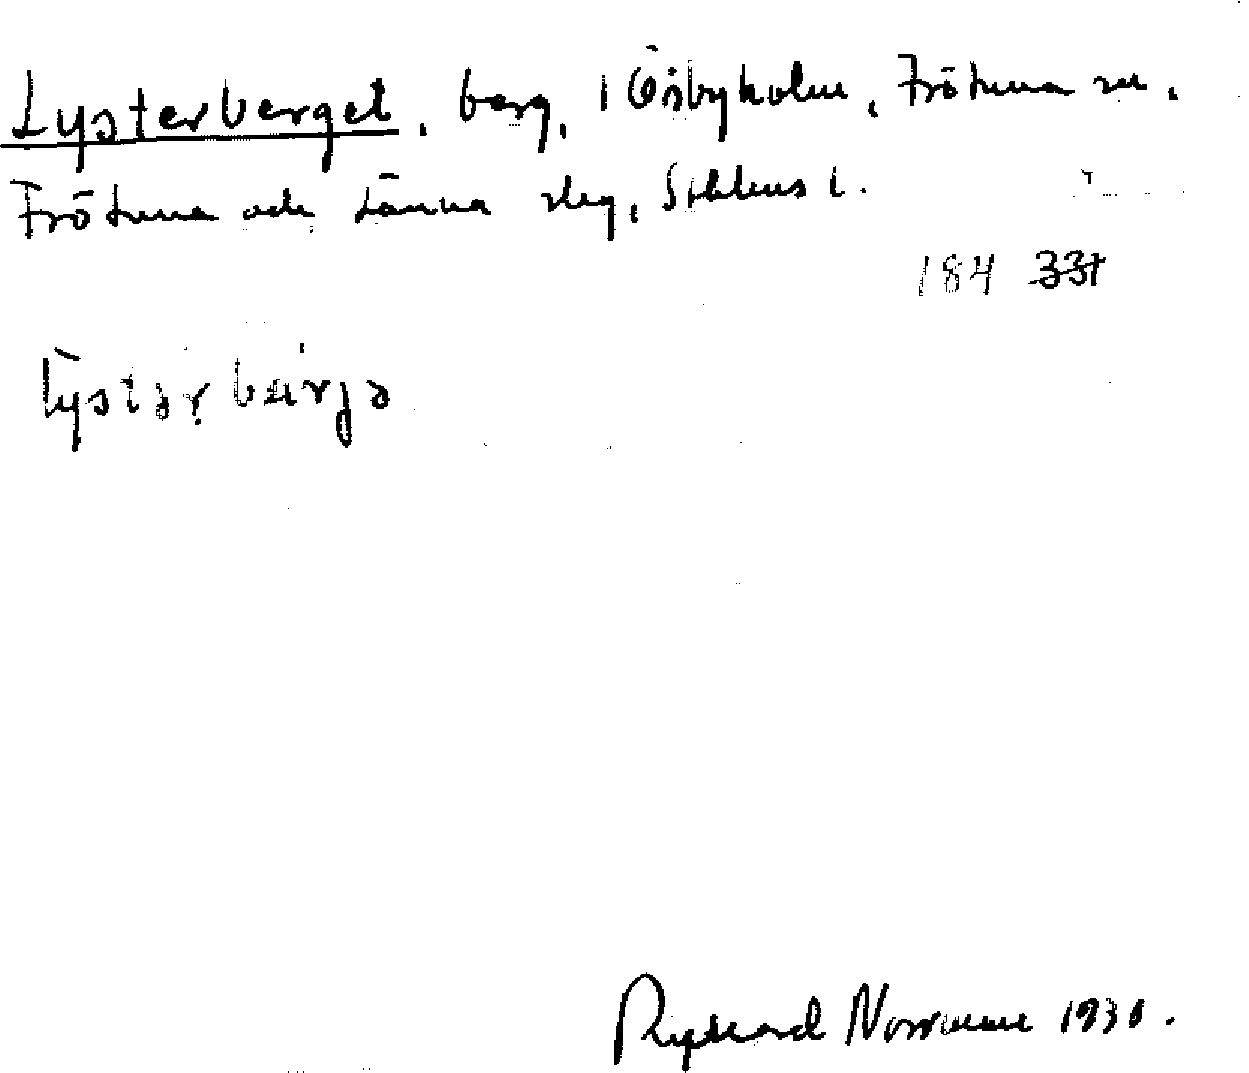 Lysterberget, berg, i Ösbyholm, Frötuna sn,
Frötuna och Länna slg, Sthlms l.
184 331
lystərbärjə
Rickard Norrman 1930.